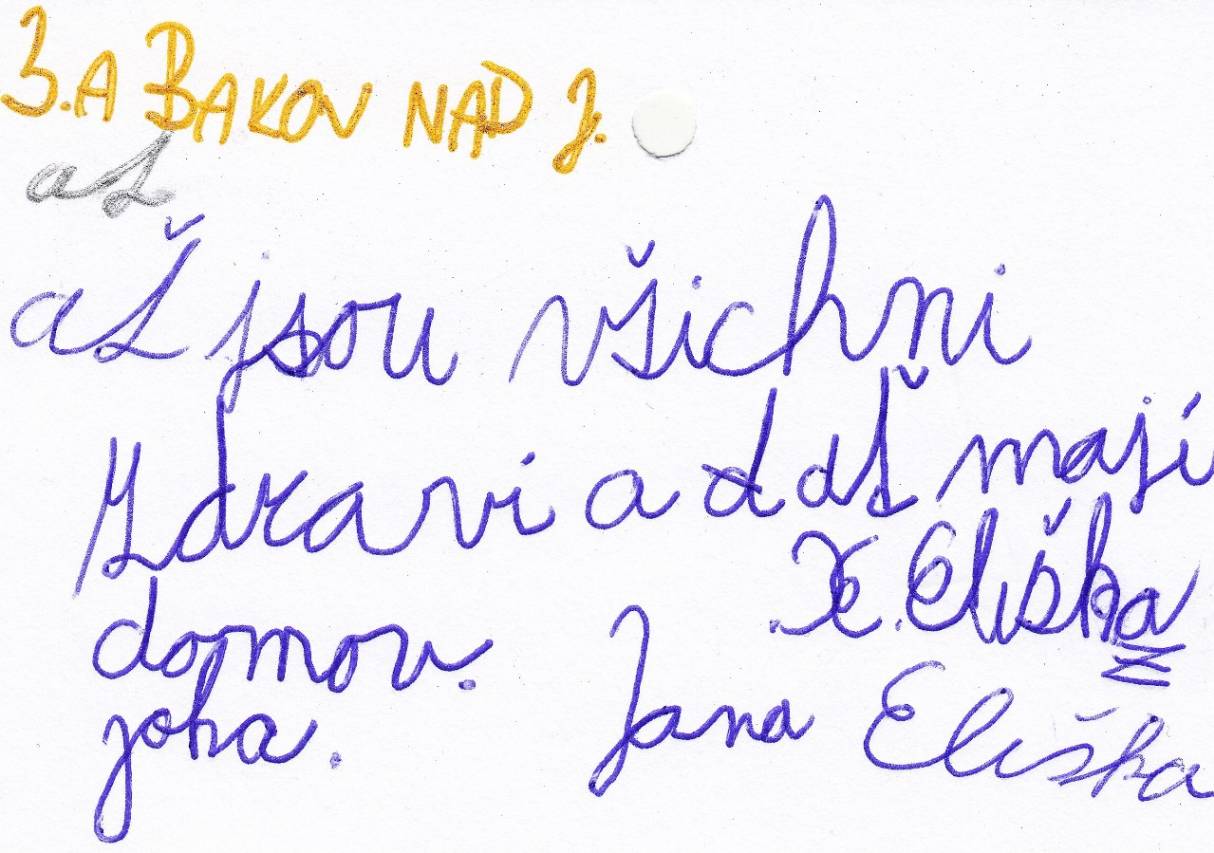 3.A BAKOV NAD J.
až
až jsou všichni
zdravi a ať mají
K. Eliška
domov.
joha. Jana Eliška